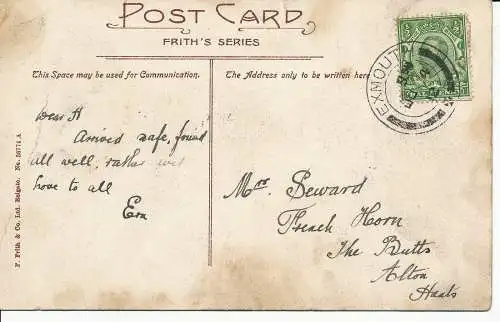 POST CARD
FRITH'S SERIES
This Space may be used for Communication.
The Address only to be written here
EXMOUTH
Dear H
Arrived safe, found
all well, rather wet
love to all
Ern
Mrs Seward
French Horn
The Butts
Alton
Hants
F. Frith & Co. Ltd. Reigate. No. 56774 A